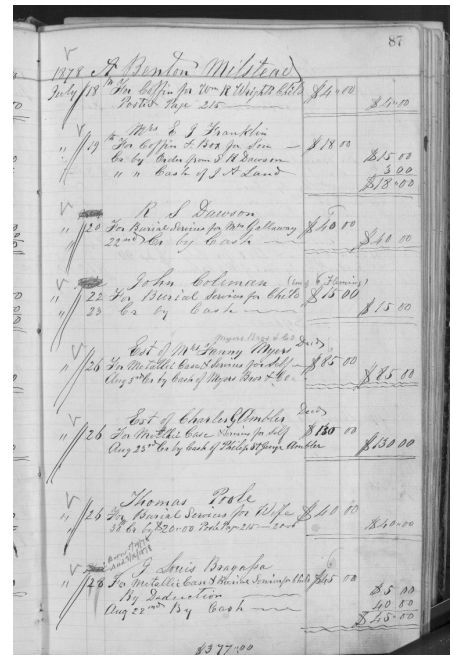 87
1878 A Benton Milstead
July 18 For Coffin for Wm R Wrights Child $4.00
Posted Page 215 $4.00
Mrs E J Franklin
" 19th For Coffin & Box for Son $18.00
Cr by Order from S R Dawson $15.00
" " Cash of J A Land 3.00
$18.00
R S Dawson
" 20 For Burial Services for Mrs Gallaway $40.00
22nd Cr by Cash $40.00
John Coleman
" 22 For Burial Services for Child $15.00
" 23 Cr by Cash $15.00
Myers Bros & Co
Est of Mrs Fanny Myers Decd
" 26 For Metallic Case & Services for Self $85.00
Aug 3rd Cr by Cash of Myers Bros & Co $85.00
Est of Charles J Ambler Decd
" 26 For Metallic Case & Services for Self $130.00
Aug 23rd Cr by Cash of Philip St George Ambler $130.00
Thomas Poole
" 26 For Burial Services for Wife $40.00
Cr by $20.00 Posted Page 215 $40.00
G Louis Bragassa
" 28 For Metallic Case & Burial Services for Child $45.00
By Deduction $5.00
Aug 22nd By Cash 40.00
$45.00
$377.00